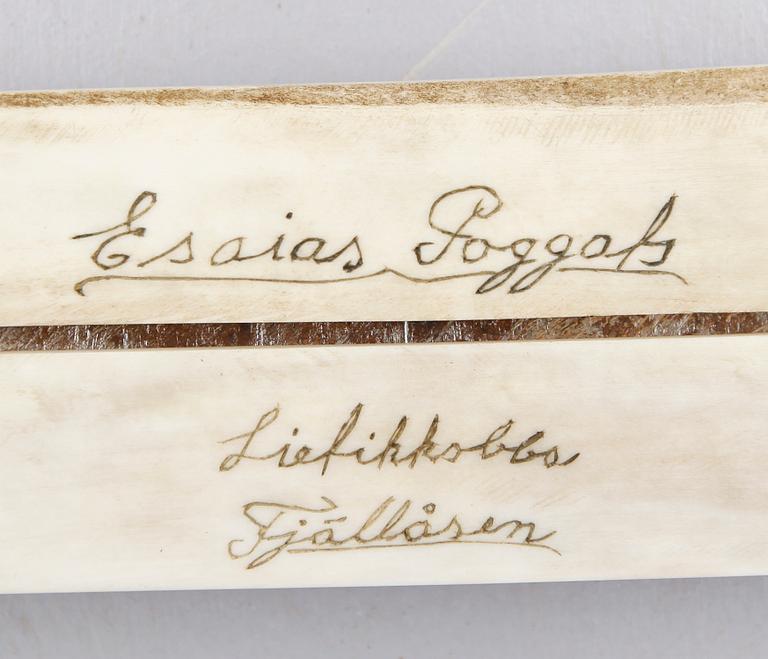 Esaias Poggats
Lietikkobbo
Fjällåsen